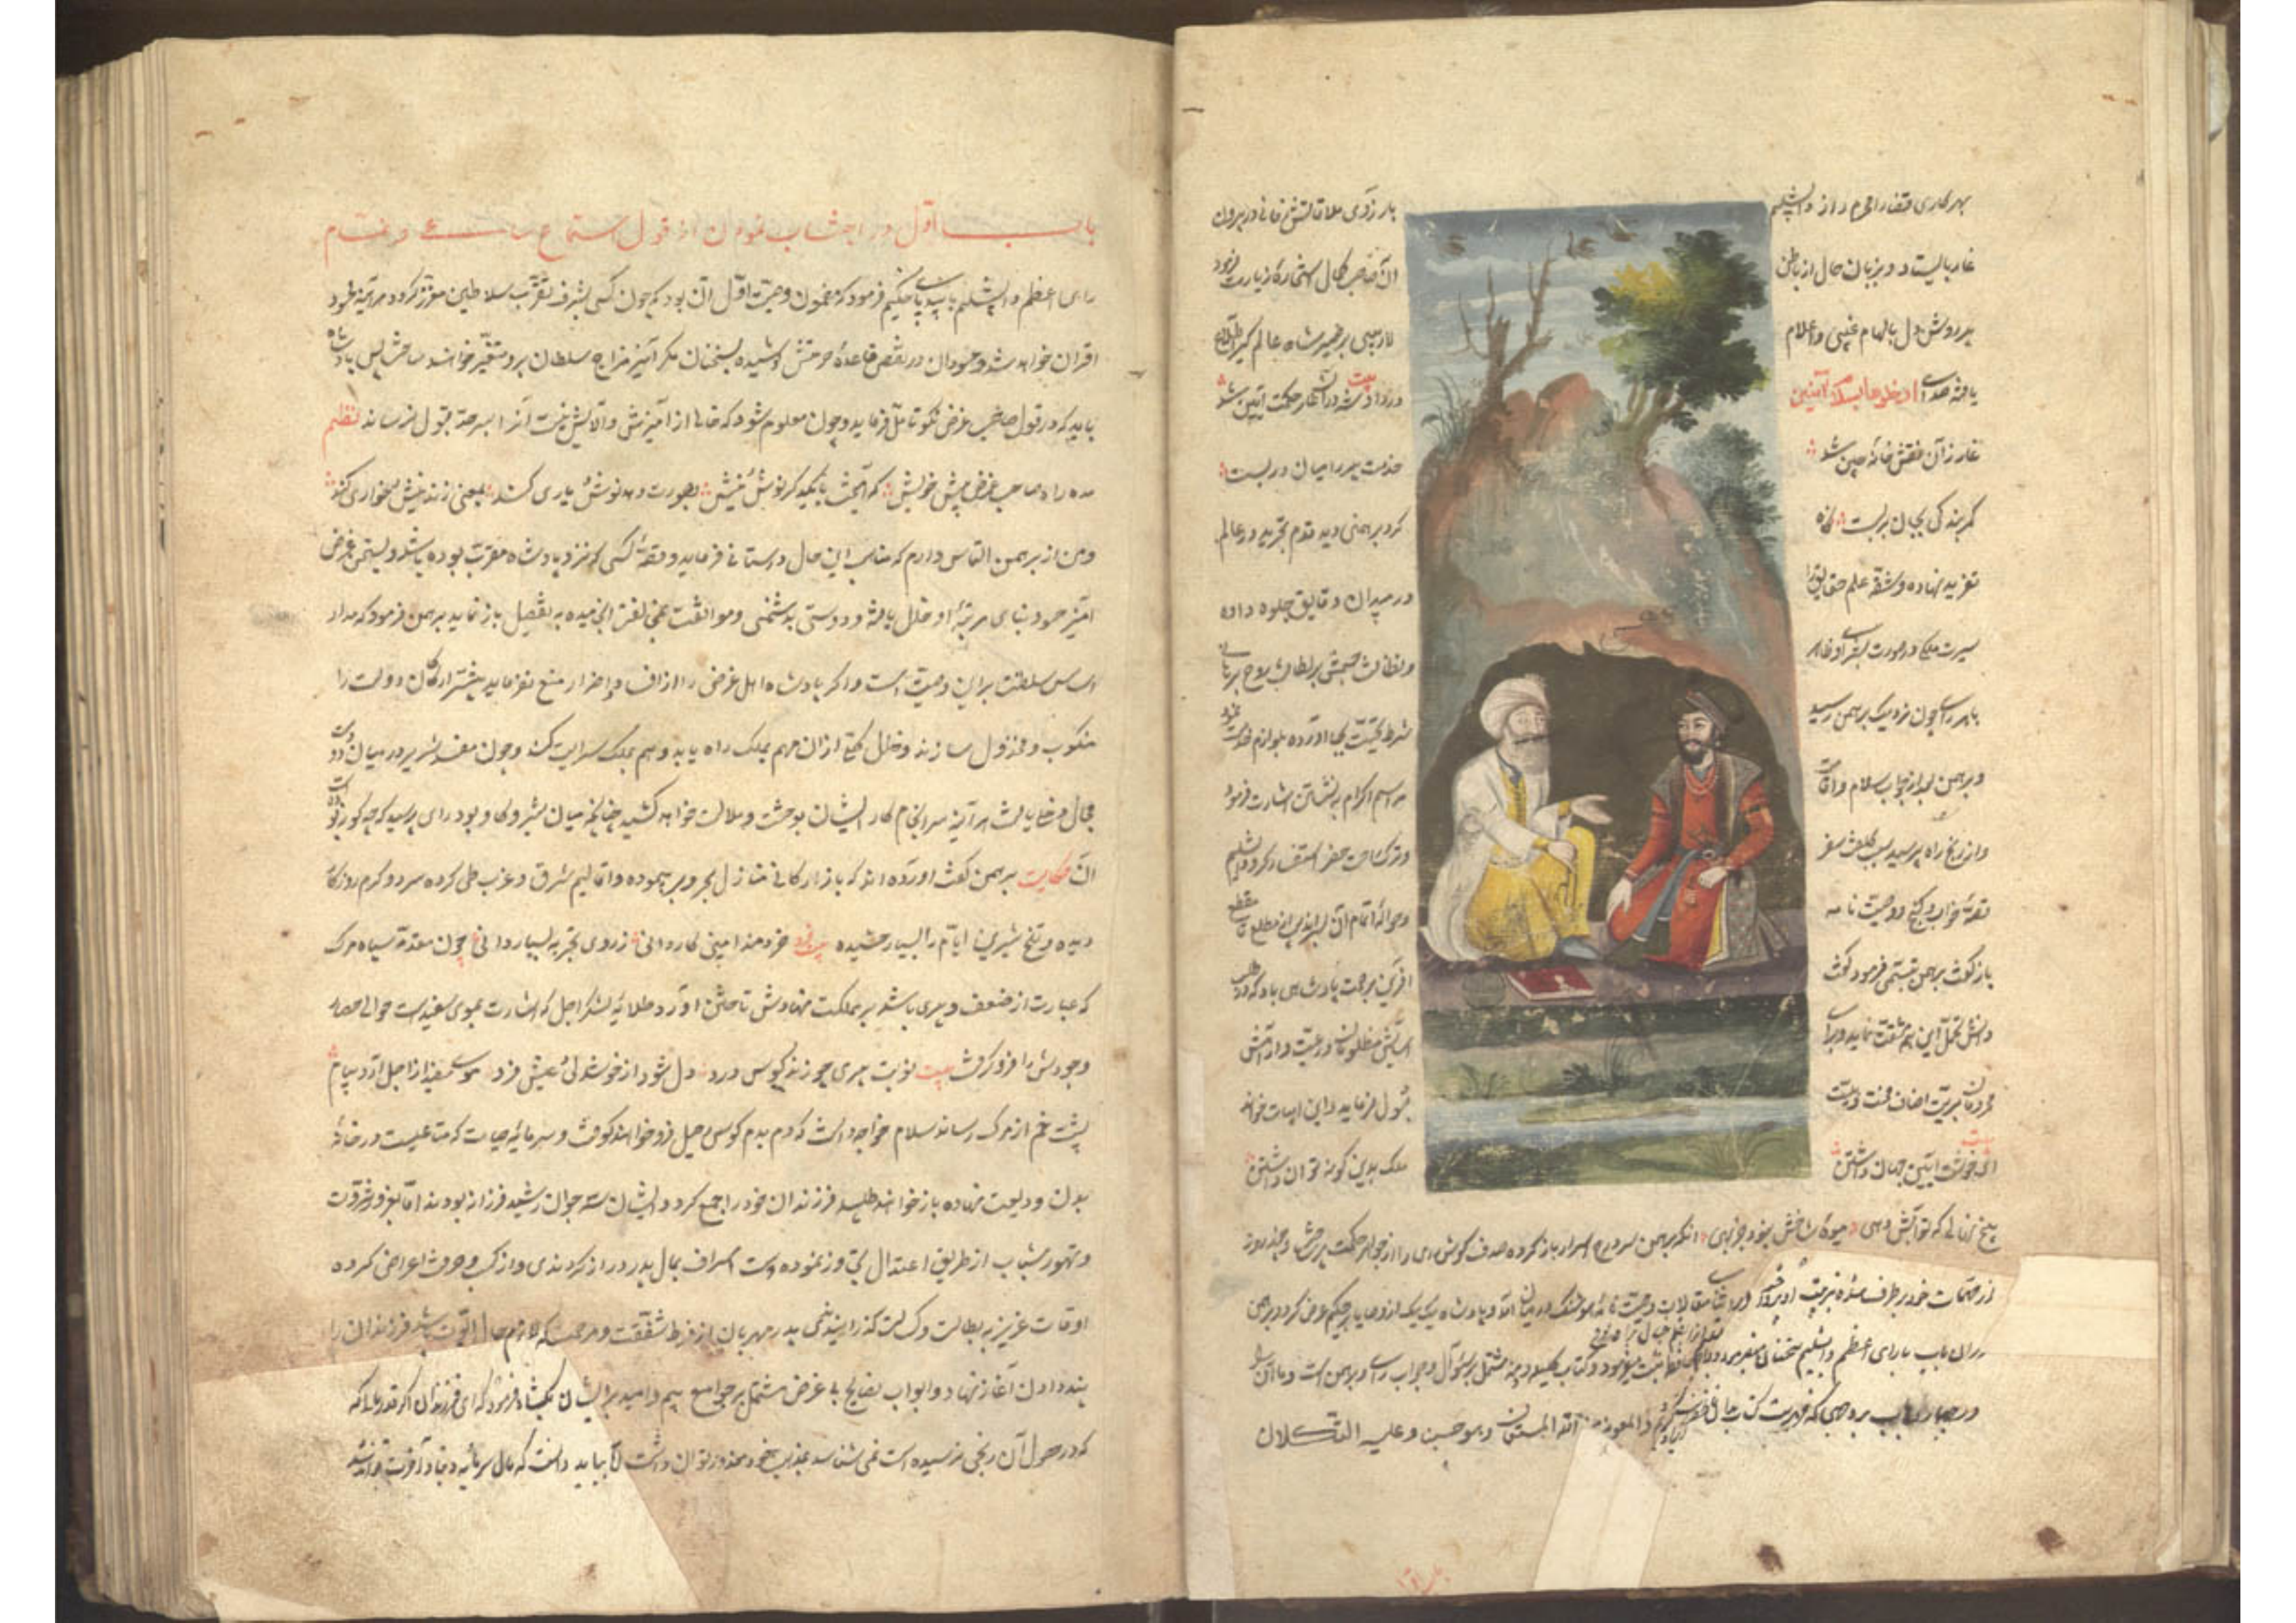 بهر کاری قضا را محرم راز دابشلیم
بار زوی ملاقاتش فانی در بیرون
غار بایستاد و بزبان حال از باطن
آن صاحب کمال استجازه زیارت نمود
پیر روشن دل بالهام غیبی و اعلام
لاریبی بر ضمیر شاه عالم گیر
یافته صدای ادخلوها بسلام آمنین
در داد بیت شه در آن غار حکمت آیین شد
غار ز آن نقش خانه چین شد
خدمت پیر را میان در بست
کمر بندگی بجان بر بست
کرد برهمنی دید قدم تجرید در عالم
تفرید نهاده و شقه علم حقایق را
در میدان دقایق جلوه داده
سیرت ملکی در صورت بشری او ظاهر
و لطافت جسمش بر لطافت روح برهان
رای چون نزدیک برهمن رسید
شرط تحیت بجا آورده بلوازم خدمت
و برهمن بعد از جواب سلام و اقامت
مراسم اکرام به نشستن اشارت فرمود
و از رنج راه پرسید سبب کلفت سفر
و ترک راحت حضر استفسار کرد دابشلیم
قصه خواب و گنج و وصیت نامه
و حواله اتمام آن بسراندیب از مطلع تا مقطع
باز گفت برهمن تبسمی فرمود و گفت
آفرین بر همت پادشاهی باد که در طلب
دانش تحمل این همه مشقت نماید و برای
آسایش مظلومان و رعیت و آرامش
قبول فرماید و این ابیات خواند
بیت ای خوشت آیین جهان داشتن
ملک بدین گونه توان داشتن
بیخ نهالی که تو آبش دهی میوه شاخش نبود جز بهی آنگه برهمن سر درج اسرار باز کرده صدف گوش رای را از جواهر حکمت پر ساخت و چند روز
از مهمات خود بر طرف شده بتربیت او پرداخت و در اثنای مقالات وصیت نامه هوشنگ در میان آمد و پادشاه یک یک از وصایا بر حکیم عرض کرد و برهمن
در ان باب با رای اعظم دابشلیم سخنان میفرمود و کتاب کلیله و دمنه مشتمل بر سؤال و جواب رای و برهمن است و ما آن را
در چهارده باب بر وجهی که فهرست کتاب و المعونة من الله المستعان و هو حسبی و علیه التکلان
باب اول در اجتناب نمودن از قول استماع ساعی و نمام
رای اعظم دابشلیم با بیدپای حکیم فرمود که مضمون وصیت اول آن بود که چون کسی بشرف تقرب سلاطین معزز گردد هر آینه محسود
اقران خواهد شد و حسودان در نقض قاعده حرمتش کوشیده بسخنان مکر آمیز مزاج سلطان برو متغیر خواهند ساخت پس پادشاه
باید که در قول صاحب غرض نکو تامل فرماید و چون معلوم شود که خالی از آمیزش و آلایش نیست آنرا بسرحد قبول نرساند نظم
مده راه صاحب غرض پیش خویش که آمیخت با یکدگر نوش نیش بصورت دهد نوش یاری کند بمعنی زند نیش و خواری کند
و من از برهمن التماس دارم که مناسب این حال داستانی فرماید و قصه کسی که نزد پادشاه مقرب بوده باشد و بسخن غرض
آمیز حسود بنای مرتبه او خلل یافته و دوستی بدشمنی و موافقت بمخالفت انجامیده به تفصیل باز نماید برهمن فرمود که مدار
اساس سلطنت برین وصیت است و اگر پادشاه اهل غرض را از افساد و اضرار منع نفرماید بیشتر ارکان دولت را
منکوب و مخذول سازند و خلل کلی از آن هم بملک راه یابد و هم بملک سرایت کند و چون مفسد شریر در میان دو دوست
مجال مدخل یافت هر آینه سرانجام کار ایشان بوحشت و ملالت خواهد کشید چنانچه میان شیر و گاو بود رای پرسید که چگونه بوده است
آن حکایت برهمن گفت آورده اند که بازارگانی منازل بحر و بر پیموده و اقالیم شرق و غرب طی کرده سرد و گرم روزگار
دیده و تلخ و شیرین ایام را بسیار چشیده بیت خردمند امینی کاردانی ز روی تجربه بسیار دانی چون مقدمه سپاه مرگ
که عبارت از ضعف و پیری باشد بر مملکت نهادش تاختن آورد و طلایه لشکر اجل که اشارت بموی سفید است حوالی حصار
وجودش را فرو گرفت بیت نوبت پیری چو زند کوس درد دل شود از خوشدلی و عیش فرد موی سفید از اجل آرد پیام
پشت خم از مرگ رساند سلام خواجه دانست که دم بدم کوس رحیل فرو خواهند کوفت و سرمایه حیات که متاعیست در خانه
بدن ودیعت نهاده باز خواهند طلبید فرزندان خود را جمع کرد و ایشان سه جوان رشید فرزانه بودند اما بغرور ثروت
و تهور شباب از طریق اعتدال تجاوز نموده دست اسراف بمال پدر دراز کردندی و از کسب و حرفت اعراض کرده
اوقات عزیز به بطالت و کسالت گذرانیدندی پدر مهربان از فرط شفقت و مرحمت که لازم حال ابوت باشد فرزندان را
پند دادن آغاز نهاد و ابواب نصایح بی غرض مشتمل بر جوامع بیم و امید بر ایشان بگشاد و فرمود که ای فرزندان اگر قدر مال که
که در حصول آن رنجی نرسیده است نمی شناسید معذور توان داشت اما بباید دانست که مال سرمایه دنیا و آخرت تواند شد